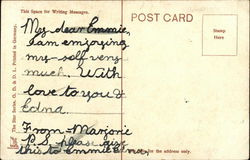 This Space for Writing Messages.
POST CARD
My dear Emmie,
I am enjoying
my-self very
much. With
love to you &
Edna.
From Marjorie
P.S. please give
this to Emmie Edna.
for the address only.
Stamp
Here
Printed in Germany.